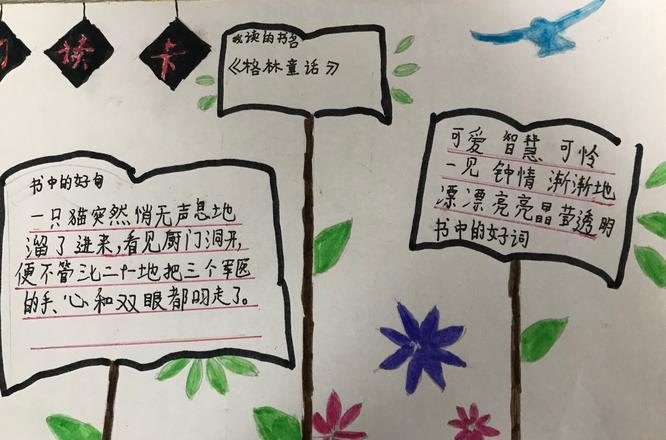 读 卡
我读的书名
《格林童话》
书中的好句
一只猫突然悄无声息地
溜了进来,看见厨门洞开,
便不管三七二十一地把三个军医
的手、心和双眼都叼走了。
可爱 智慧 可怜
一见钟情 渐渐地
漂漂亮亮晶莹透明
书中的好词